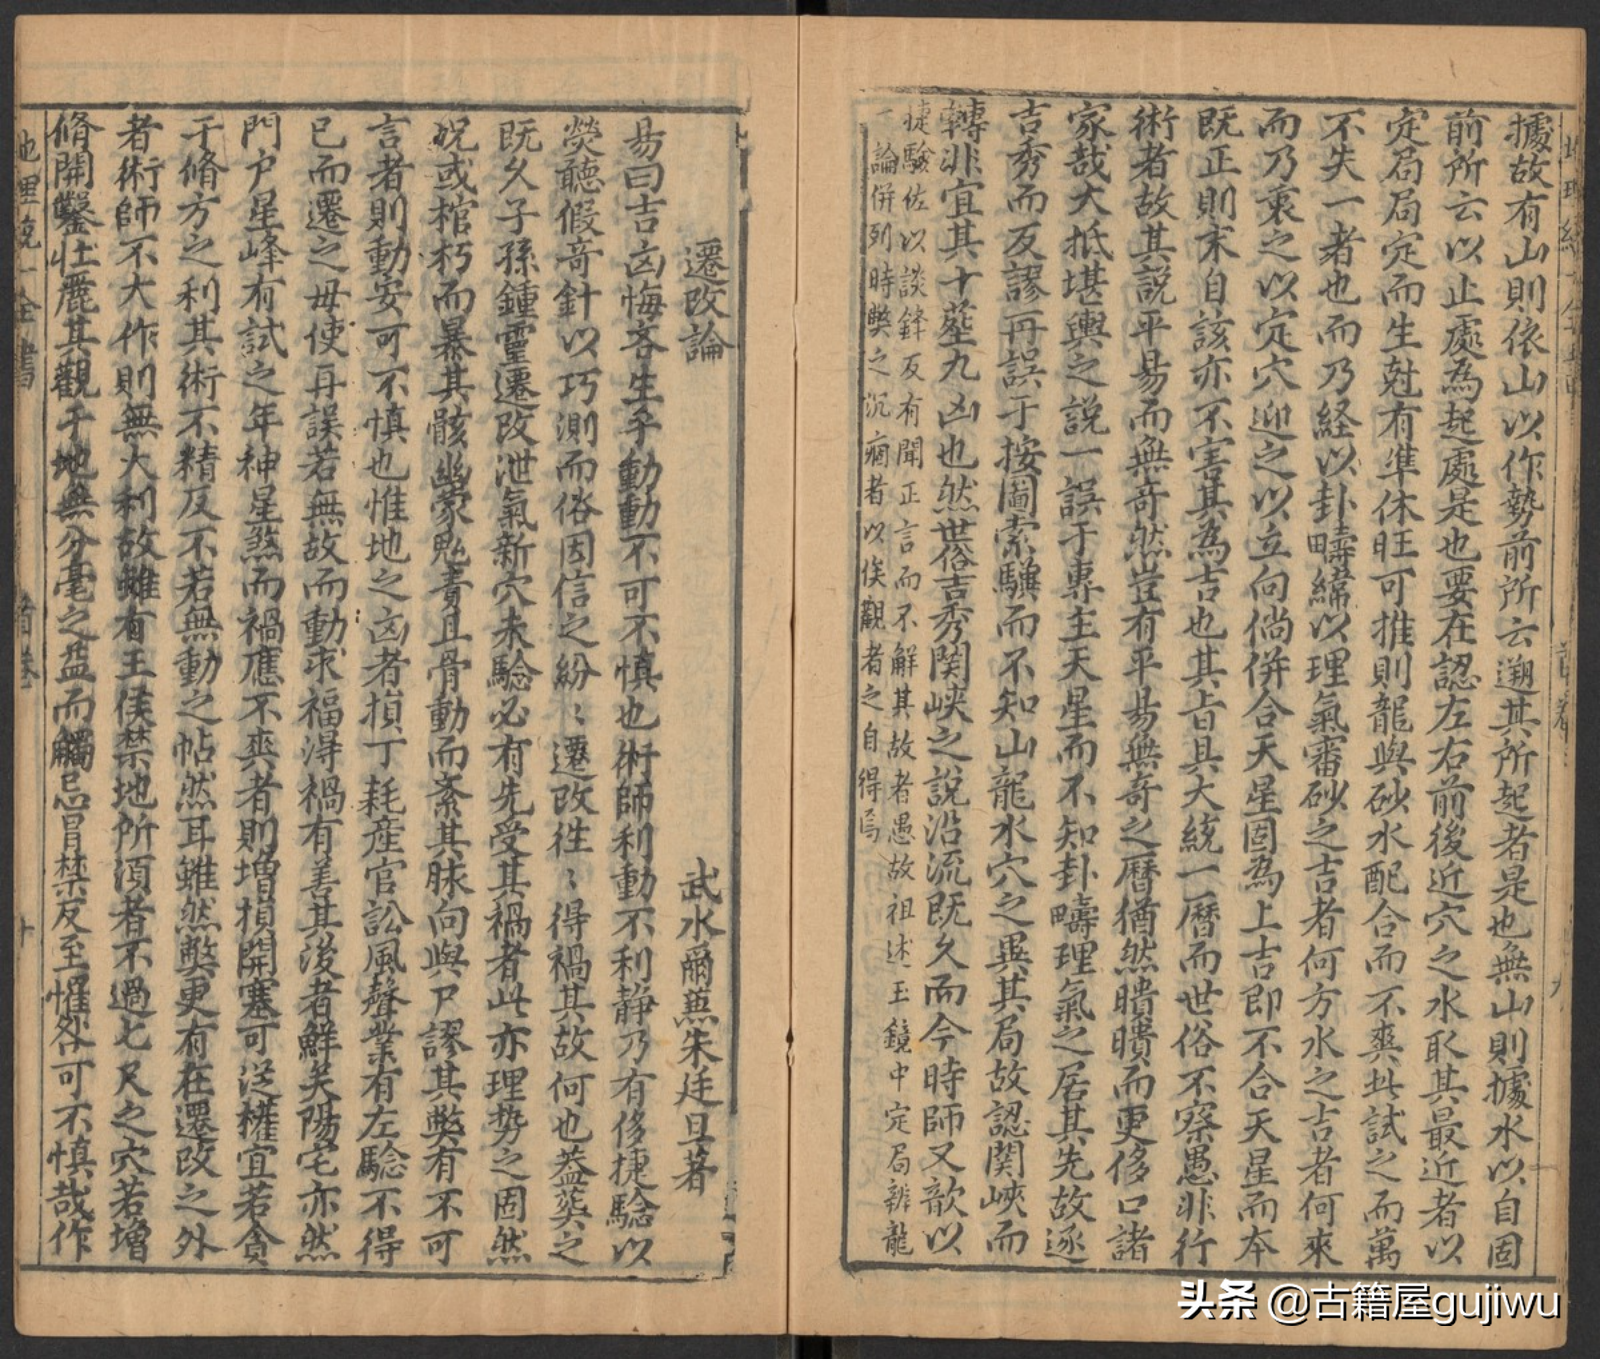 據故有山則依山以作勢前所云遡其所起者是也無山則據水以自固
前所云以止處為起處是也要在認左右前後近穴之水取其最近者以
定局局定而生尅有準休旺可推則龍與砂水配合而不爽此試之而萬
不失一者也而乃経以卦疇緯以理氣審砂之吉者何方水之吉者何來
而乃東之以定穴迎之以立向倘併合天星固為上吉即不合天星而本
既正則末自該亦不害其為吉也其旨具大統一曆而世俗不察愚非行
術者故其説平易而無竒然豈有平易無竒之曆猶然瞶瞶而更侈口諸
家哉大抵堪輿之説一誤于專主天星而不知卦疇理氣之居其先故逐
吉秀而反謬再誤于按圖索驥而不知山龍水穴之異其局故認関峽而
轉非宜其十塟九凶也然世俗吉秀関峽之說沿流既久而今時師又歆以
捷驗佐以談鋒反有聞正言而不解其故者愚故祖述玉鏡中定局辨龍
一論併列時獘之沉痼者以俟觀者之自得焉
地理統一全書
首卷
九
遷改論
武水爾蕪朱廷旦著
易曰吉凶悔吝生乎動動不可不慎也術師利動不利静乃有侈捷騐以
熒聽假竒針以巧測而俗因信之紛〻遷改徃〻得禍其故何也葢塟之
既久子孫鍾靈遷改泄氣新穴未驗必有先受其禍者此亦理勢之固然
況或棺朽而暴其骸幽蒙見責且骨動而紊其脉向與尸謬其獘有不可
言者則動安可不慎也惟地之凶者損丁耗産官訟風聲業有左驗不得
已而遷之毋使再誤若無故而動求福得禍有善其後者鮮矣陽宅亦然
門户星峰有試之年神星煞而禍應不爽者則増損開塞可從權宜若貪
于脩方之利其術不精反不若無動之帖然耳雖然獘更有在遷改之外
者術師不大作則無大利故雖有王侯禁地所須者不過七尺之穴若增
脩開鑿壯麗其觀于地無分毫之益而觸忌冒禁反至懼咎可不慎哉作
地理統一全書
首卷
十
头条 @古籍屋gujiwu